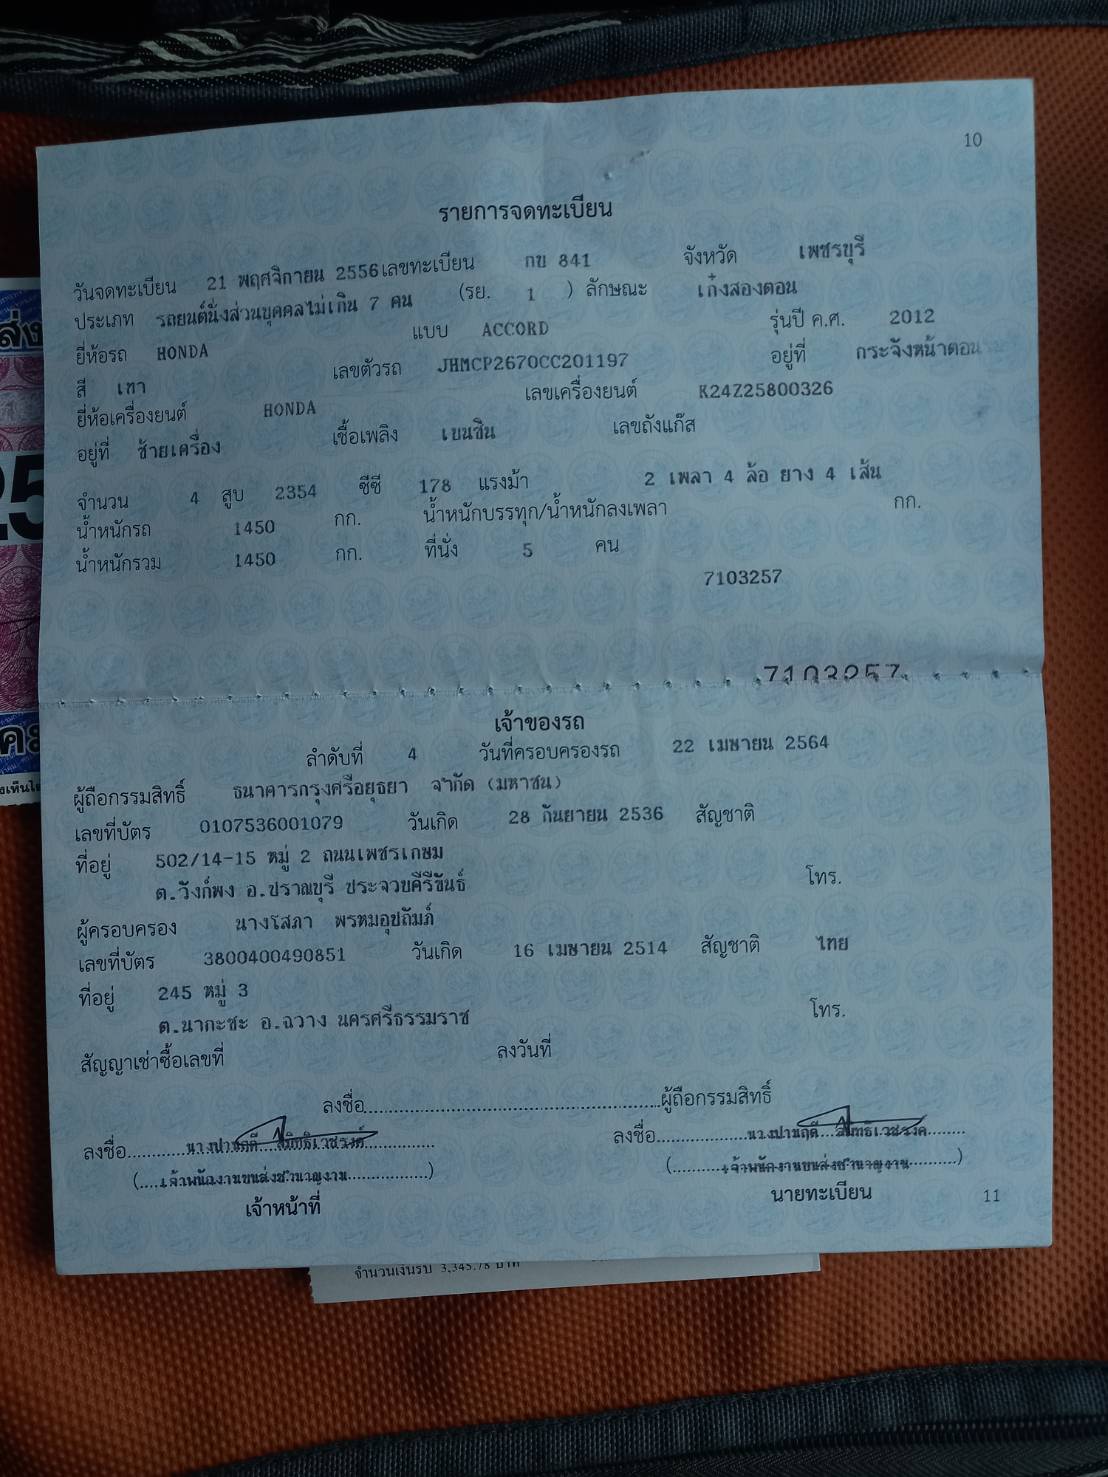 10
รายการจดทะเบียน
วันจดทะเบียน 21 พฤศจิกายน 2556 เลขทะเบียน กข 841 จังหวัด เพชรบุรี
ประเภท รถยนต์นั่งส่วนบุคคลไม่เกิน 7 คน (รย. 1 ) ลักษณะ เก๋งสองตอน
ยี่ห้อรถ HONDA แบบ ACCORD รุ่นปี ค.ศ. 2012
สี เทา เลขตัวรถ JHMCP2670CC201197 อยู่ที่ กระจังหน้าตอน
ยี่ห้อเครื่องยนต์ HONDA เลขเครื่องยนต์ K24Z25800326
อยู่ที่ ซ้ายเครื่อง เชื้อเพลิง เบนซิน เลขถังแก๊ส
จำนวน 4 สูบ 2354 ซีซี 178 แรงม้า 2 เพลา 4 ล้อ ยาง 4 เส้น
น้ำหนักรถ 1450 กก. น้ำหนักบรรทุก/น้ำหนักลงเพลา กก.
น้ำหนักรวม 1450 กก. ที่นั่ง 5 คน
7103257
7103257
เจ้าของรถ
ลำดับที่ 4 วันที่ครอบครองรถ 22 เมษายน 2564
ผู้ถือกรรมสิทธิ์ ธนาคารกรุงศรีอยุธยา จำกัด (มหาชน)
เลขที่บัตร 0107536001079 วันเกิด 28 กันยายน 2536 สัญชาติ
ที่อยู่ 502/14-15 หมู่ 2 ถนนเพชรเกษม
ต.วังก์พง อ.ปราณบุรี ประจวบคีรีขันธ์ โทร.
ผู้ครอบครอง นางโสภา พรหมอุปถัมภ์
เลขที่บัตร 3800400490851 วันเกิด 16 เมษายน 2514 สัญชาติ ไทย
ที่อยู่ 245 หมู่ 3
ต.นากะชะ อ.ฉวาง นครศรีธรรมราช โทร.
สัญญาเช่าซื้อเลขที่ ลงวันที่
ลงชื่อ ผู้ถือกรรมสิทธิ์
ลงชื่อ ลงชื่อ
(เจ้าพนักงานขนส่งชำนาญงาน) (เจ้าพนักงานขนส่งชำนาญงาน)
เจ้าหน้าที่ นายทะเบียน
11
จำนวนเงินรับ 3,345.78 บาท